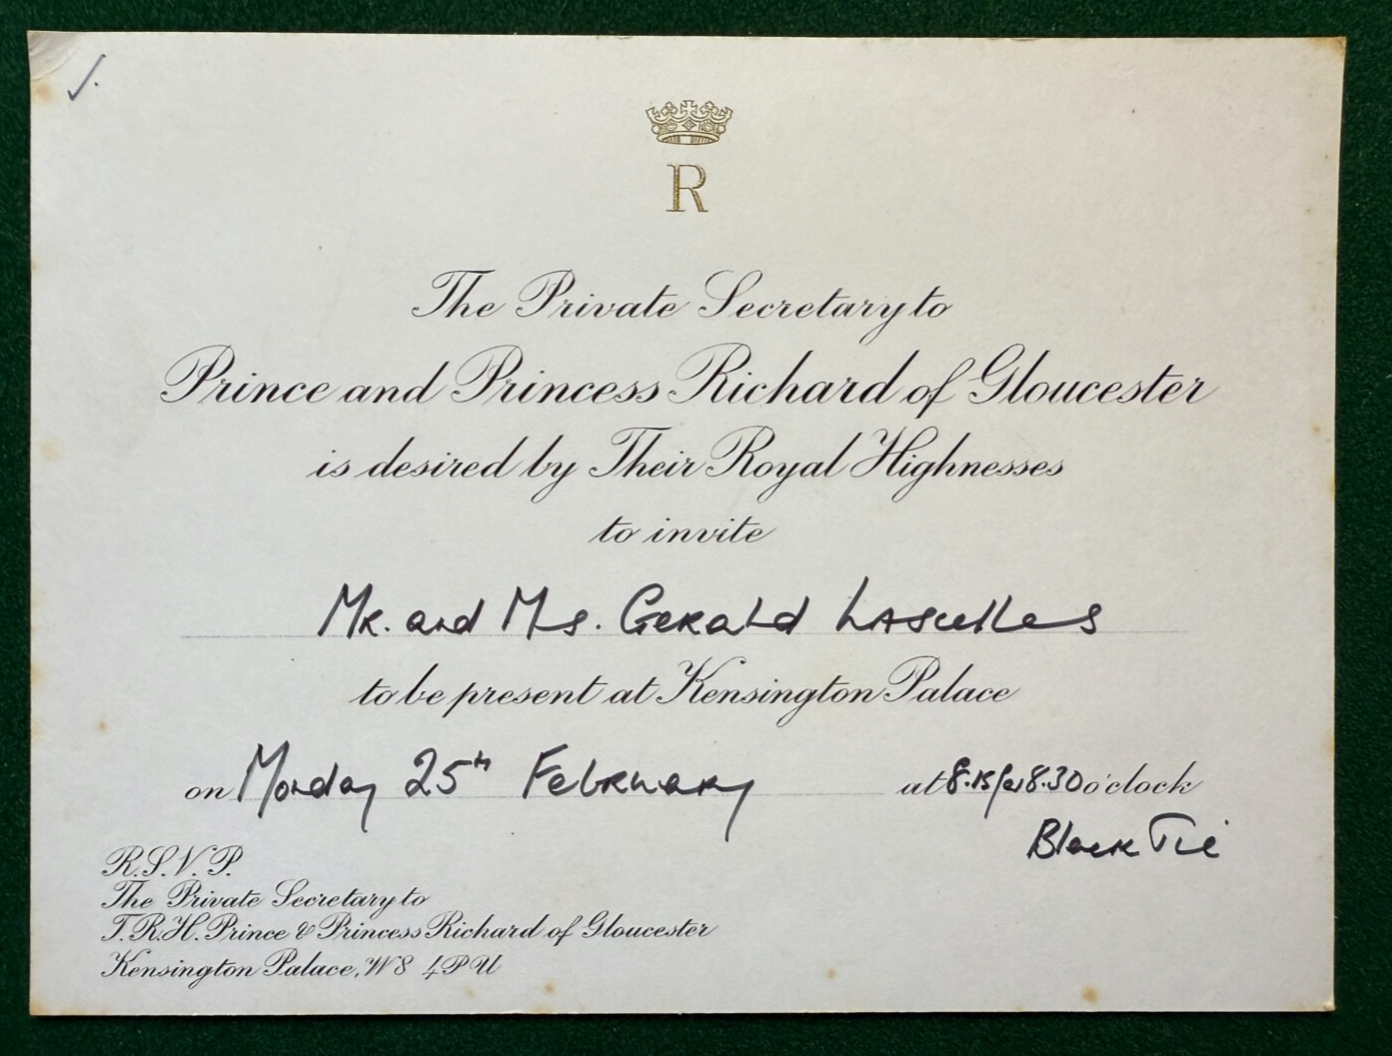 R
The Private Secretary to
Prince and Princess Richard of Gloucester
is desired by Their Royal Highnesses
to invite
Mr. and Mrs. Gerald Lascelles
to be present at Kensington Palace
on Monday 25th February at 8.15 for 8.30 o'clock
Black Tie
R.S.V.P.
The Private Secretary to
T.R.H. Prince & Princess Richard of Gloucester
Kensington Palace, W8 4PU